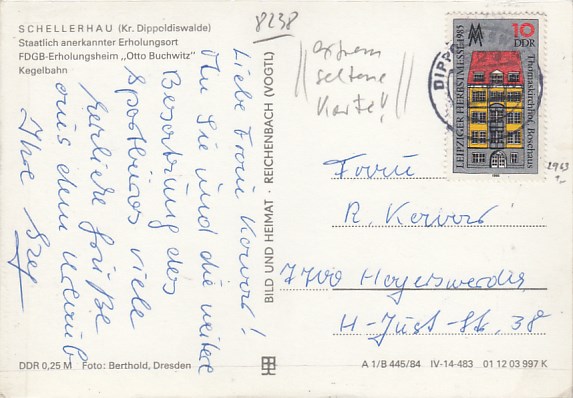 SCHELLERHAU (Kr. Dippoldiswalde)
Staatlich anerkannter Erholungsort
FDGB-Erholungsheim „Otto Buchwitz"
Kegelbahn
8238
extrem
seltene
Karte!
LEIPZIGER HERBSTMESSE 1985
10
DDR
Thomaskirchhof, Bosehaus
DIPPO
2963
Liebe Frau
Ihn Sie und die weitere
Besatzung des
Sportbüros viele
herzliche Grüße
aus dem Urlaub
Ihre
BILD UND HEIMAT · REICHENBACH (VOGTL)
Frau
R.
7700 Hoyerswerda
H-Just-Str. 38
DDR 0,25 M Foto: Berthold, Dresden
A 1/B 445/84 IV-14-483 01 12 03 997 K